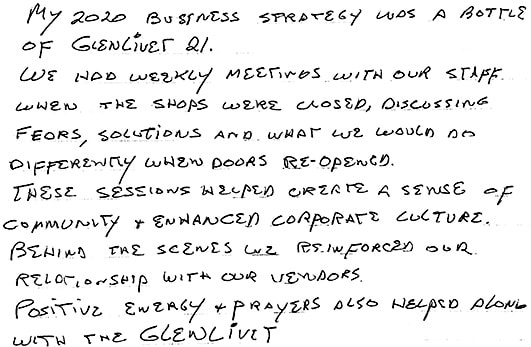 My 2020 BUSINESS STRATEGY WAS A BOTTLE
OF GLENLIVET 21.
WE HAD WEEKLY MEETINGS WITH OUR STAFF
WHEN THE SHOPS WERE CLOSED, DISCUSSING
FEARS, SOLUTIONS AND WHAT WE WOULD DO
DIFFERENTLY WHEN DOORS RE-OPENED.
THESE SESSIONS HELPED CREATE A SENSE OF
COMMUNITY & ENHANCED CORPORATE CULTURE.
BEHIND THE SCENES WE REINFORCED OUR
RELATIONSHIP WITH OUR VENDORS.
POSITIVE ENERGY & PRAYERS ALSO HELPED ALONG
WITH THE GLENLIVET